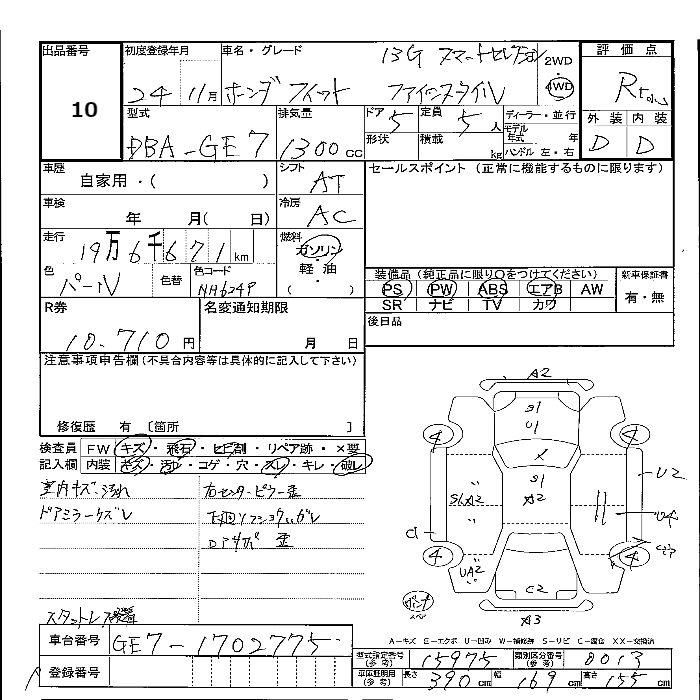 出品番号
10
初度登録年月
24 11月
車名・グレード
13G スマートセレクション
ホンダ フィット ファインスタイル
2WD
4WD
評価点
R
外装 内装
D D
型式
DBA-GE7
排気量
1300cc
ドア 5
定員 5人
形状
積載 kg
ディーラー・並行
モデル年式 年
ハンドル 左・右
車歴
自家用・( )
シフト
AT
セールスポイント (正常に機能するものに限ります)
車検
年 月( 日)
冷房
AC
走行
19万6千671km
燃料
ガソリン
・
軽油
( )
色
パール
色替
色コード
NH624P
装備品 (純正品に限り○をつけてください)
PS PW ABS エアB AW
SR ナビ TV カワ
新車保証書
有・無
R券
10,710円
名変通知期限
月 日
後日品
注意事項申告欄(不具合内容等は具体的に記入して下さい)
修復歴 有 〔箇所 〕
検査員 FW キズ・飛石・ヒビ割・リペア跡・×要
記入欄 内装 キズ・汚れ・コゲ・穴・スレ・キレ・破レ
室内キズ・汚れ
右センターピラー歪
ドアミラーキズレ
スタットレス
A2
S1
U1
4
4
X
S1
A2
S1 A2
U2
U4
C1
4
4
UA2
C2
A3
A-キズ E-エクボ U-凹み W-補修跡 S-サビ C-腐食 XX-交換済
車台番号
GE7-1702775
登録番号
型式指定番号(参考) 15975
類別区分番号(参考) 0013
車庫証明用(参考) 長さ 390cm 幅 169cm 高さ 155cm